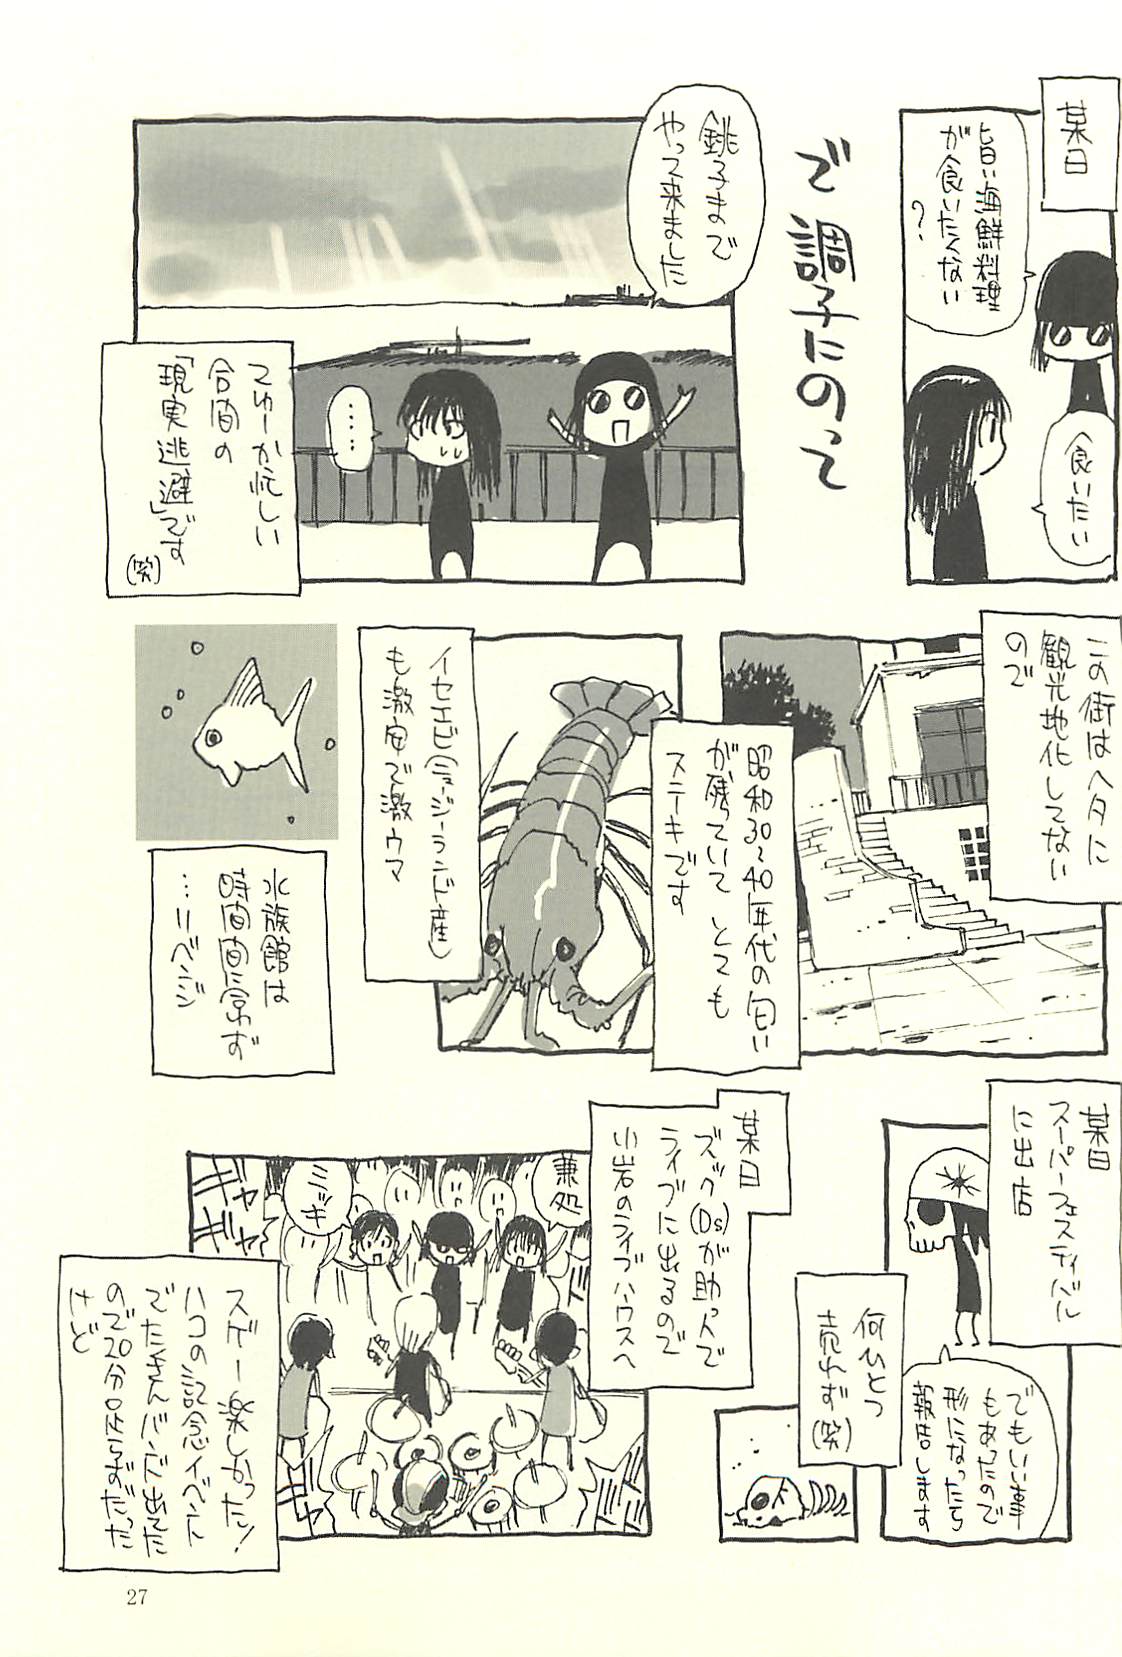 某日
旨い海鮮料理
が食いたくない
?
食いたい
で調子にのって
銚子まで
やって来ました
‥‥
てゆーか忙しい
合間の
「現実逃避」です
(笑)
この街はヘタに
観光地化してない
ので
昭和30~40年代の匂い
が残っていてとても
ステキです
イセエビ(ニュージーランド産)
も激安で激ウマ
水族館は
時間間に合わず
…リベンジ
某日
スーパーフェスティバル
に出店
何ひとつ
売れず(笑)
でもいい事
もあったので
形になったら
報告します
某日
ズック(Ds)が助っ人で
ライブに出るので
小岩のライブハウスへ
兼処
ミギ
ギャ
ギャ
スゲー楽しかった!
ハコの記念イベント
でたくさんバンド出てた
ので20分足らずだった
けど
27